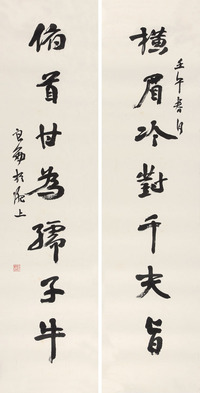 壬午春月
橫眉冷對千夫旨
俯首甘為孺子牛
於滬上